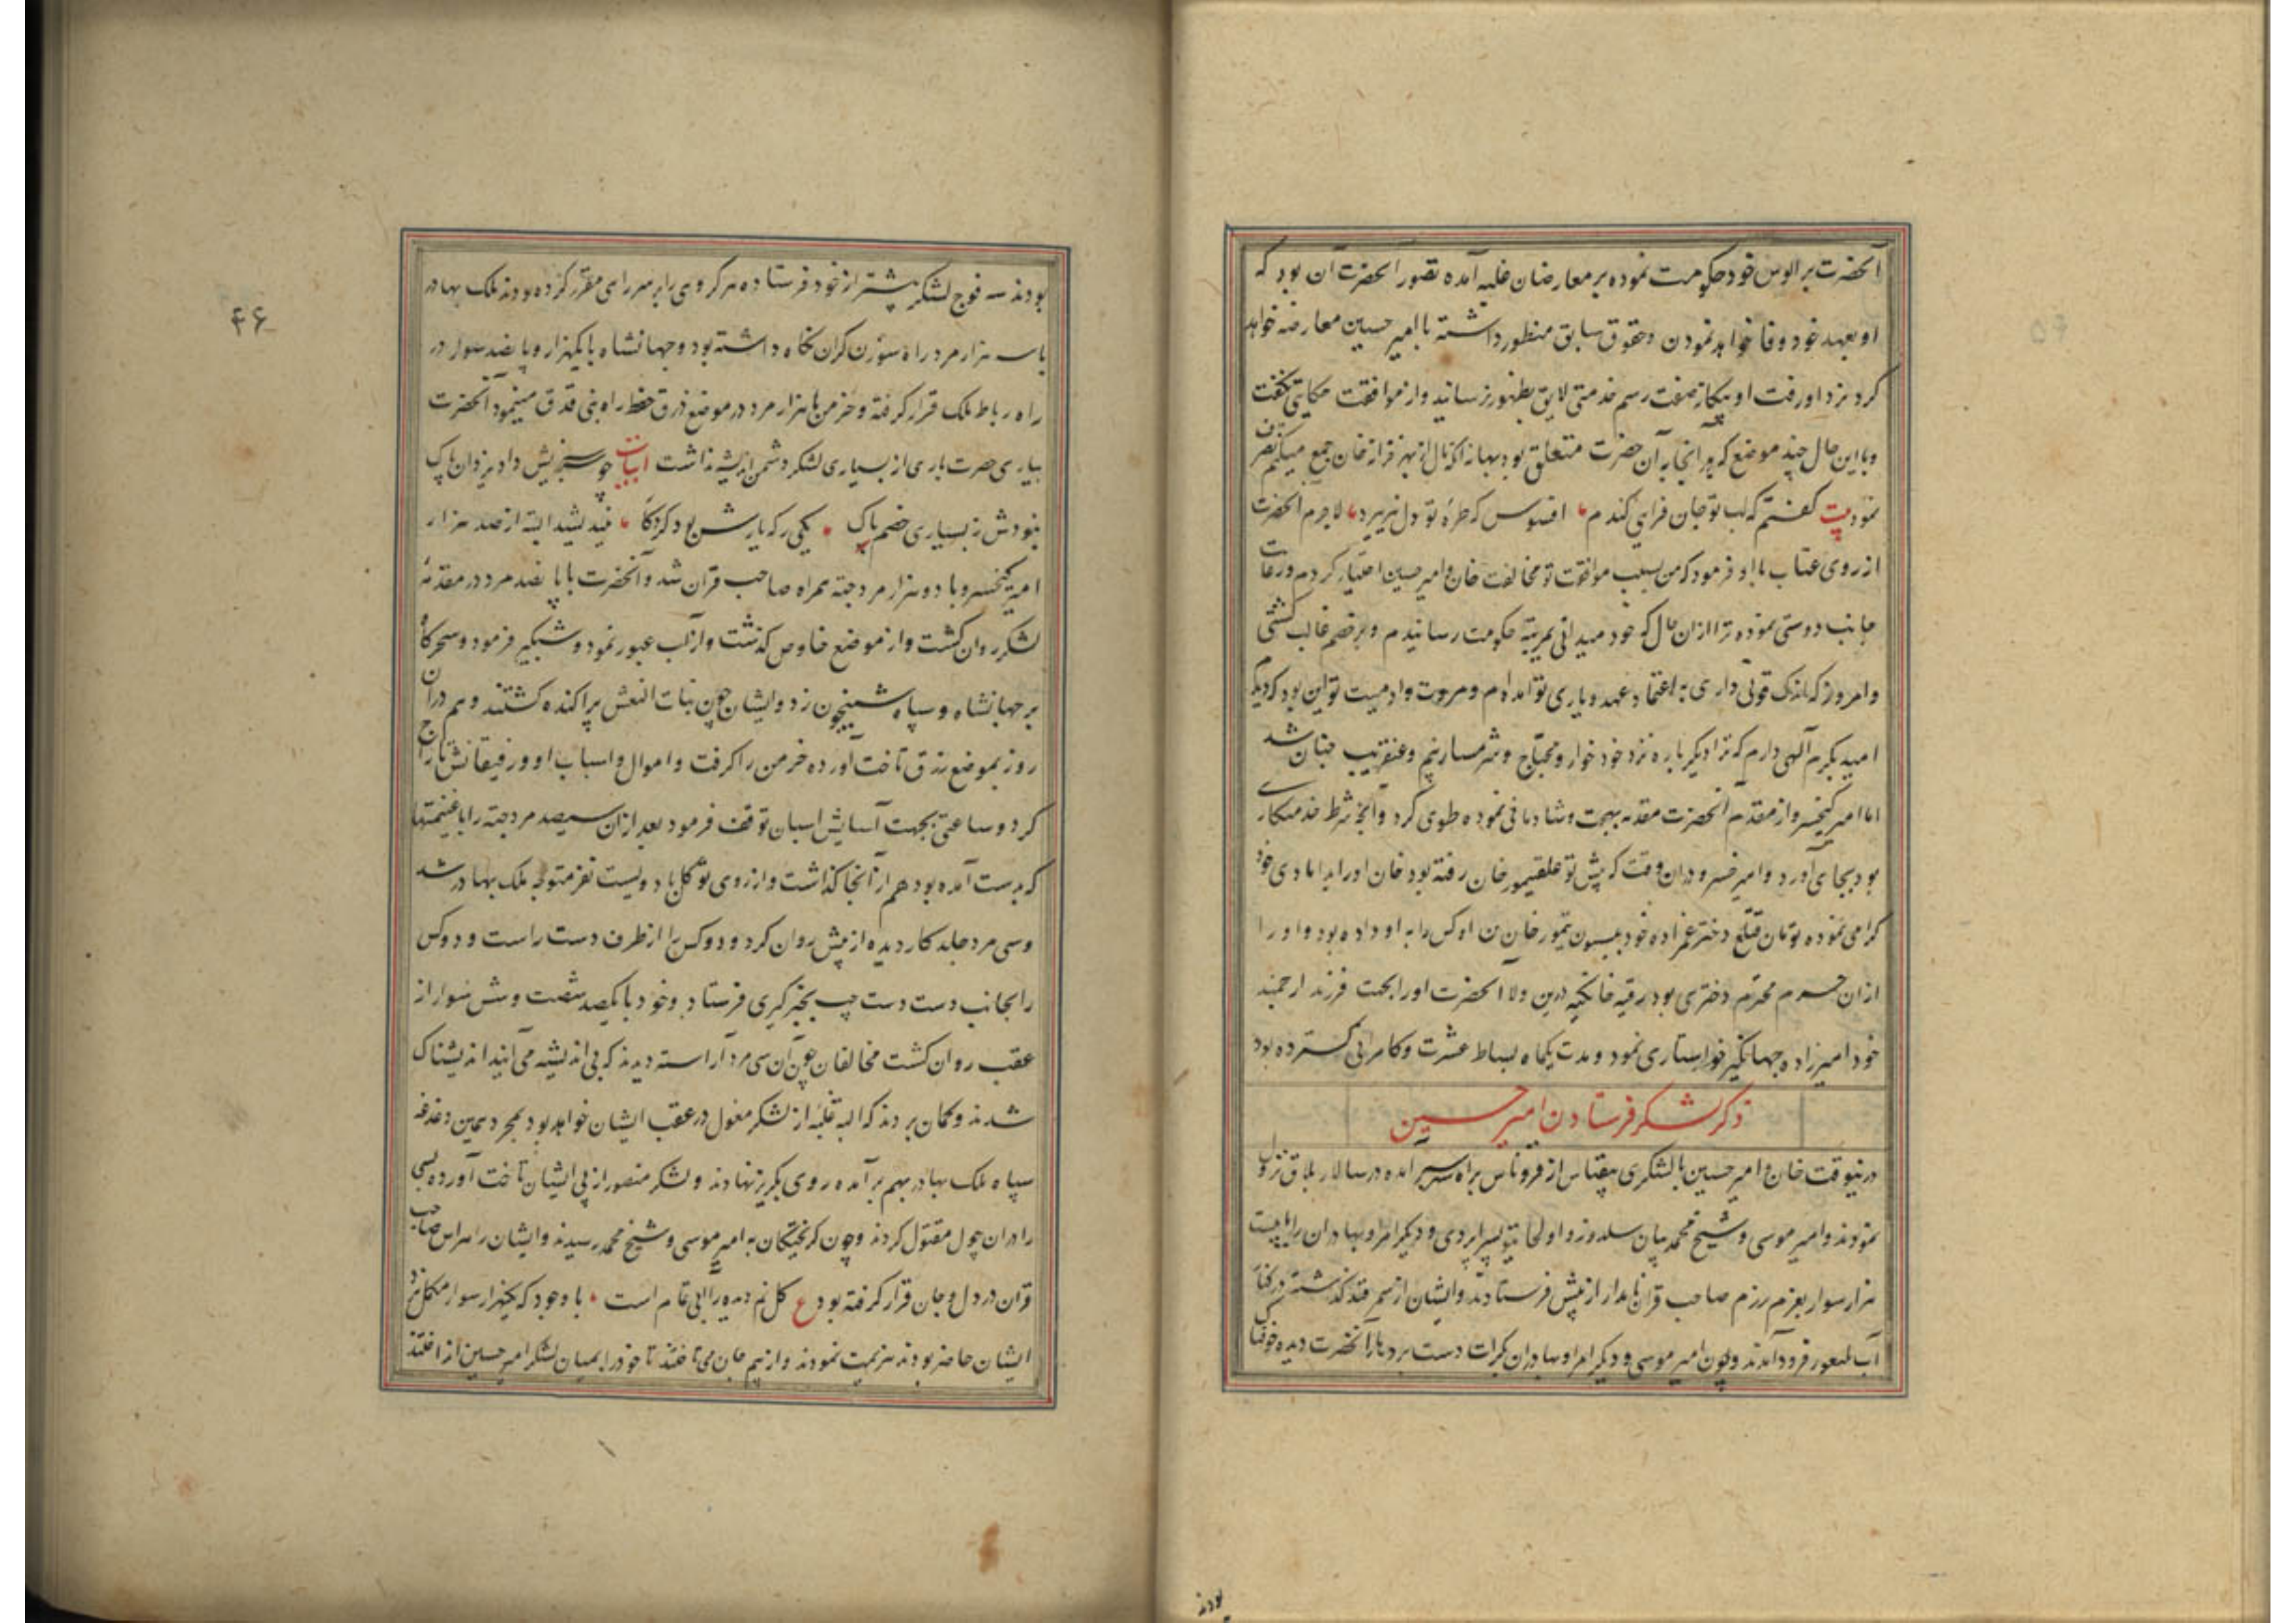 آنحضرت بر الوس خود حکومت نموده بر معارضان غلبه آمده تصور آنحضرت آن بود که
او بعهد خود وفا خواهد نمودن و حقوق سابق منظور داشته با امیر حسین معارضه خواهد
کرد نزد او رفت او بیکاز صفت رسم خدمتی لایق بظهور نرسانید و از موافقت حکایتی نگفت
و با این حال چند موضع که در آنجا به آن حضرت متعلق بود بهانه آنکه مال از بهر خزانه خان جمع میکنم تصرف
نمود بیت گفتم که لب تو جان فزای کندم افسوس که طره تو دل نپذیرد لاجرم آنحضرت
از روی عتاب با او فرمود که من بسبب موافقت تو مخالفت خان و امیر حسین اختیار کردم و رعایت
جانب دوستی نموده ترا از ان حال که خود میدانی بمرتبه حکومت رسانیدم و بر خصم غالب گشتی
و امروز که اندک قوتی داری به اعتماد عهد و یاری تو آمده ام و مروت و آدمیت تو این بود که دیدم
امید بکرم آلهی دارم که ترا دیگر باره نزد خود خوار و محتاج و شرمسار بینم و عنقریب چنان شد
اما امیر کیخسرو از مقدم آنحضرت مقدمه بهجت و شادمانی نموده طوی کرد و آنچه شرط خدمتکاری
بود بجای آورد و امیر خسرو در ان وقت که پیش توغلقتیمور خان رفته بود خان او را بدامادی خود
گرامی نموده تومان قتلغ دختر عمزاده خود بیسون تیمور خان بن اوکس را به او داده بود و او را
از ان حرم محترم دختری بود رقیه خانیکه درین ولا آنحضرت او را بجهت فرزند ارجمند
خود امیرزاده جهانگیر خواستاری نمود و مدت یکماه بساط عشرت و کامرانی گسترده بود
ذکر لشکر فرستادن امیر حسین
درینوقت خان و امیر حسین با لشکری بیقیاس از قروناس براه سر آمده در سالار بلاق نزول
نمودند و امیر موسی و شیخ محمد بیان سلدوز و اولجایتو پسر اپردی و دیگر امرا و بهادران را با بیست
هزار سوار بعزم رزم صاحب قران نامدار از پیش فرستادند و ایشان از سمرقند گذشته در کنار
آب بلغور فرود آمدند و چون امیر موسی و دیگر امرا و بهادران بکرات دست برد ها از آنحضرت دیده خوفناک
بودند
۴۶
بودند سه فوج لشکر پیشتر از خود فرستاده هر گروهی را بر سر راهی مقرر کرده بودند ملک بهادر
با سه هزار مرد راه سوزن گران نگاه داشته بود و جهانشاه با یکهزار و پانصد سوار در
راه رباط ملک قرار گرفته و خرمن با هزار مرد در موضع زرق حفظ راه بنی قدق مینمود آنحضرت
بیاری حضرت باری از بسیاری لشکر دشمن اندیشه نداشت ابیات چو سرخیش داد یزدان پاک
نبودش ز بسیاری خصم باک یکی را که یارش بود کردگار نیندیشد البته از صد هزار
امیر کیخسرو با دو هزار مرد جته همراه صاحب قران شد و آنحضرت با پانصد مرد در مقدمه
لشکر روان گشت و از موضع خاوص گذشت و از آب عبور نمود و شبگیر فرمود و سحرگاه
بر جهانشاه و سپاه شبیخون زد و ایشان چون بنات النعش پراکنده گشتند و هم در ان
روز بموضع زرق تاخت آورده خرمن را گرفت و اموال و اسباب او و رفیقانش تاراج
کرد و ساعتی بجهت آسایش اسبان توقف فرمود بعد از ان سیصد مرد جته را با غنیمتها
که بدست آمده بود هم از آنجا گذاشت و از روی توکل با دویست نفر متوجه ملک بهادر شد
و سی مرد جلد کار دیده از پیش روان کرد و دو کس را از طرف دست راست و دو کس
را بجانب دست دست چپ بخبرگیری فرستاد و خود با یکصد شصت و شش سوار از
عقب روان گشت مخالفان چون آن سی مرد آراسته دیدند که بی اندیشه می آیند اندیشناک
شدند و گمان بردند که البته غلبه از لشکر مغول در عقب ایشان خواهد بود بمجرد همین دغدغه
سپاه ملک بهادر بهم برآمده روی بگریز نهادند و لشکر منصور از پی ایشان تاخت آورده بسی
را در ان چول مقتول کردند و چون گریختگان به امیر موسی و شیخ محمد رسیدند و ایشان را هراس صاحب
قران در دل و جان قرار گرفته بود ع گل نم دیده را آبی تمام است با وجود که یکهزار سوار مکمل نزد
ایشان حاضر بودند هزیمت نمودند و از بیم جان می تاختند تا خود را بمیان لشکر امیر حسین انداختند